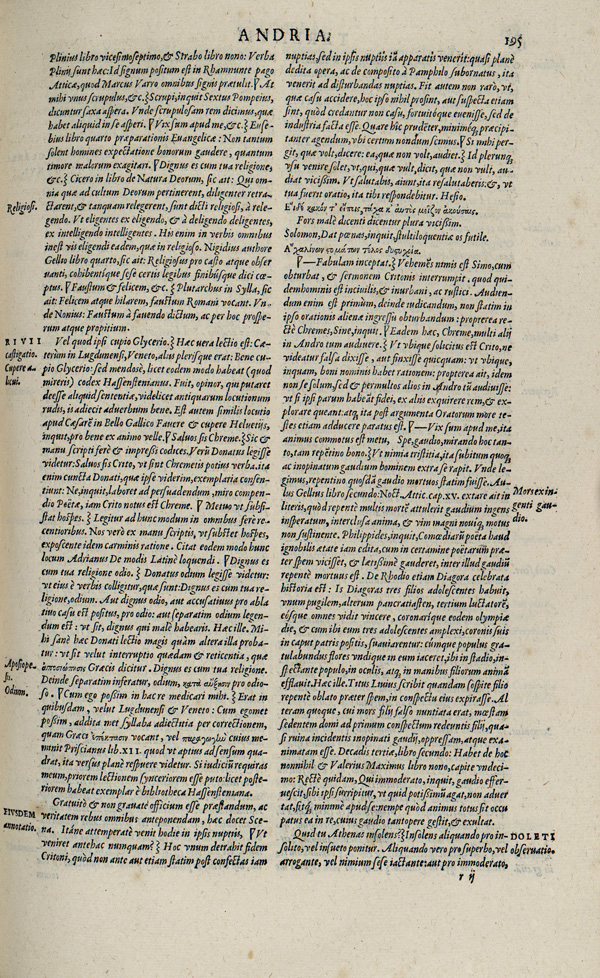 ANDRIA.
195
Plinius libro vicesimoseptimo, & Strabo libro nono: Verba
Plinii sunt hæc: Id signum positum est in Rhamnunte pago
Atticæ, quod Marcus Varro omnibus signis prætulit. ¶ At
mihi vnus scrupulus, &c. ⸹ Scrupi, inquit Sextus Pompeius,
dicuntur saxa aspera. Vnde scrupulosam rem dicimus, quæ
habet aliquid in se asperi. ¶ Vix sum apud me, &c. ⸹ Euse-
bius libro quarto præparationis Euangelicæ: Non tantum
solent homines expectatione bonorum gaudere, quantum
timore malorum exagitari. ¶ Dignus es cum tua religione,
&c. ⸹ Cicero in libro de Natura Deorum, sic ait: Qui om-
nia quæ ad cultum Deorum pertinerent, diligenter retra-
Religiosi.
ctarent, & tanquam relegerent, sunt dicti religiosi, à rele-
gendo. Vt eligentes ex eligendo, & à deligendo deligentes,
ex intelligendo intelligentes. His enim in verbis omnibus
inest vis eligendi eadem, quæ in religioso. Nigidius authore
Gellio libro quarto, sic ait: Religiosus pro casto atque obser
uanti, cohibentique sese certis legibus finibusque dici cœ-
ptus. ¶ Faustum & felicem, &c. ⸹ Plutarchus in Sylla, sic
ait: Felicem atque hilarem, faustum Romani vocant. Vn-
de Nonius: Faustum à fauendo dictum, ac per hoc prospe-
rum atque propitium.
RIVII
castigatio.
Cupere a-
licui.
Vel quod ipsi cupio Glycerio. ⸹ Hæc uera lectio est: Cæ-
terùm in Lugdunensi, Veneto, aliis plerisque erat: Bene cu-
pio Glycerio: sed mendosè, licet eodem modo habeat (quod
mireris) codex Hassenstenianus. Fuit, opinor, qui putaret
deesse aliquid sententiæ, videlicet antiquarum locutionum
rudis, is adiecit aduerbum bene. Est autem similis locutio
apud Cæsarem in Bello Gallico Fauere & cupere Heluetijs,
inquit, pro bene ex animo velle. ¶ Saluus sis Chreme. ⸹ Sic &
manu scripti ferè & impressi codices. Verùm Donatus legisse
videtur: Saluus sis Crito, vt sint Chremetis potius verba. ita
enim cuncta Donati, quæ ipse viderim, exemplaria consen-
tiunt: Ne, inquit, laboret ad persuadendum, miro compen-
dio Poëtæ, iam Crito notus est Chreme. ¶ Metuo vt substi-
stat hospes. ⸹ Legitur ad hunc modum in omnibus ferè re-
centioribus. Nos verò ex manu scriptis, vt substet hospes,
exposcente idem carminis ratione. Citat eodem modo hunc
locum Adrianus De modis Latinè loquendi. ¶ Dignus es
cum tua religione odio. ⸹ Donatus odium legisse videtur:
vt ei è verbis colligitur, quæ sunt: Dignus es cum tua re-
ligione, odium. Aut dignus odio, aut accusatiuus pro abla
tiuo casu est positus, pro odio: aut separatim odium legen-
dum est: vt sit, dignus, qui malè habearis. Hæc ille. Mi-
hi sanè hæc Donati lectio magis quàm altera illa proba-
tur: vt sit velut interruptio quædam & reticentia, quæ
Aposiope-
sis.
ἀποσιώπησις Græcis dicitur. Dignus es cum tua religione.
Odium.
Deinde separatim inferatur, odium, κατὰ αὔξησιν pro odio-
so. ¶ Cum ego possim in hac re medicari mihi. ⸹ Erat in
quibusdam, velut Lugdunensi & Veneto: Cum egomet
possim, addita met syllaba adiectitia per correctionem,
quam Græci vocant, vel cuius me-
minit Priscianus lib. XII. quod vt aptius ad sensum qua-
drat, ita versus planè respuere videtur. Si iudiciū requiras
meum, priorem lectionem synceriorem esse puto: licet poste-
riorem habeat exemplar è bibliotheca Hassensteniana.
EIVSDEM
annotatio.
Gratuitò & non grauatè officium esse præstandum, ac
veritatem rebus omnibus anteponendam, hæc docet Sce-
na. Itáne attemperatè venit hodie in ipsis nuptiis, ¶ Vt
veniret antehac nunquam? ⸹ Hoc vnum detrahit fidem
Critoni, quòd non ante aut etiam statim post confectas iam
nuptias, sed in ipsis nuptiis iā apparatis venerit: quasi planè
dedita opera, ac de composito à Pamphilo subornatus, ita
venerit ad disturbandas nuptias. Fit autem non rarò, vt,
quæ casu accidere, hoc ipso nihil prosint, aut suspecta etiam
sint, quòd credantur non casu, fortuitóque euenisse, sed de
industria facta esse. Quare hîc prudēter, minimèq; præcipi-
tanter agendum, vbi certum nondum scimus. ¶ Si mihi per-
git, quæ volt, dicere: ea, quæ non volt, audiet. ⸹ Id plerunq́;
vsu venire solet, vt, qui, quæ vult, dicit, quæ non vult, au-
diat vicissim. Vt salutabis, aiunt, ita resalutaberis: &, vt
tua fuerit oratio, ita tibi respondebitur. Hesio.
Εἰ δὲ κακὸν τ' εἴποις, τάχα κ' αὐτὸς μεῖζον ἀκούσαις.
Fors malè dicenti dicentur plura vicissim.
Solomon, Dat pœnas, inquit, stultiloquentiæ os futile.
¶ —Fabulam inceptat. ⸹ Vehemēs nimis est Simo, cum
obturbat, & sermonem Critonis interrumpit. quod qui-
dem hominis est inciuilis, & inurbani, ac rustici. Audien-
dum enim est primùm, deinde iudicandum, non statim in
ipso orationis alienæ ingressu obturbandum: propterea re-
ctè Chremes, Sine, inquit. ¶ Eadem hæc, Chreme, multi alij
in Andro tum audiuere. ⸹ Vt vbique solicitus est Crito, ne
videatur falsa dixisse, aut finxisse quicquam: vt vbique,
inquam, boni nominis habet rationem: propterea ait, idem
non se solum, sed & permultos alios in Andro tū audiuisse:
vt si ipsi parum habeāt fidei, ex aliis exquirere rem, & ex-
plorare queant: atq; ita post argumenta Oratorum more te-
stes etiam adducere paratus est. ¶ —Vix sum apud me, ita
animus commotus est metu, Spe, gaudio, mirando hoc tan-
to, tam repētino bono. ⸹ Vt nimia tristitia, ita subitum quoq;
ac inopinatum gaudium hominem extra se rapit. Vnde le-
gimus, repentino quosdā gaudio mortuos statim fuisse. Au-
lus Gellius libro secundo: Noct. Attic. cap. XV. extare ait in
Mors ex in-
genti gau-
dio.
literis, quòd repentè multis mortē attulerit gaudium ingens
insperatum, interclusa anima, & vim magni nouiq; motus
non sustinente. Philippides, inquit, Comœdiarū poëta haud
ignobilis ætate iam edita, cum in certamine poëtarum præ-
ter spem vicisset, & lætissimè gauderet, inter illud gaudiū
repentè mortuus est. De Rhodio etiam Diagora celebrata
historia est: Is Diagoras tres filios adolescentes habuit,
vnum pugilem, alterum pancratiasten, tertium luctatorē,
eósque omnes vidit vincere, coronarique eodem olympiæ
die, & cum ibi eum tres adolescentes amplexi, coronis suis
in caput patris positis, suauiarentur: cúmque populus gra-
tulabundus flores vndique in eum iaceret, ibi in stadio, in-
spectante populo, in osculis, atq; in manibus filiorum animā
efflauit. Hæc ille. Titus Liuius scribit quandam sospite filio
repentè oblato præter spem, in conspectu eius expirasse. Al
teram quoque, cui mors filij falsò nuntiata erat, mœstam
sedentem domi ad primum conspectum redeuntis filij, qua-
si ruina incidentis inopinati gaudij, oppressam, atque exa-
nimatam esse. Decadis tertiæ, libro secundo: Habet de hoc
nonnihil & Valerius Maximus libro nono, capite vndeci-
mo: Rectè quidam, Qui immoderato, inquit, gaudio effer-
uescit, sibi ipsi surripitur, vt quid potissimū agat, non aduer
tat, sitq́; minimè apud se: nempe quòd animus totus sit occu
patus ea in re, cuius gaudio tantopere gestit, & exultat.
DOLETI
obseruatio.
Quid tu Athenas insolens? ⸹ Insolens aliquando pro in-
solito, vel insueto ponitur. Aliquando vero pro superbo, vel
arrogante, vel nimium sese iactante: aut pro immoderato,
r ij